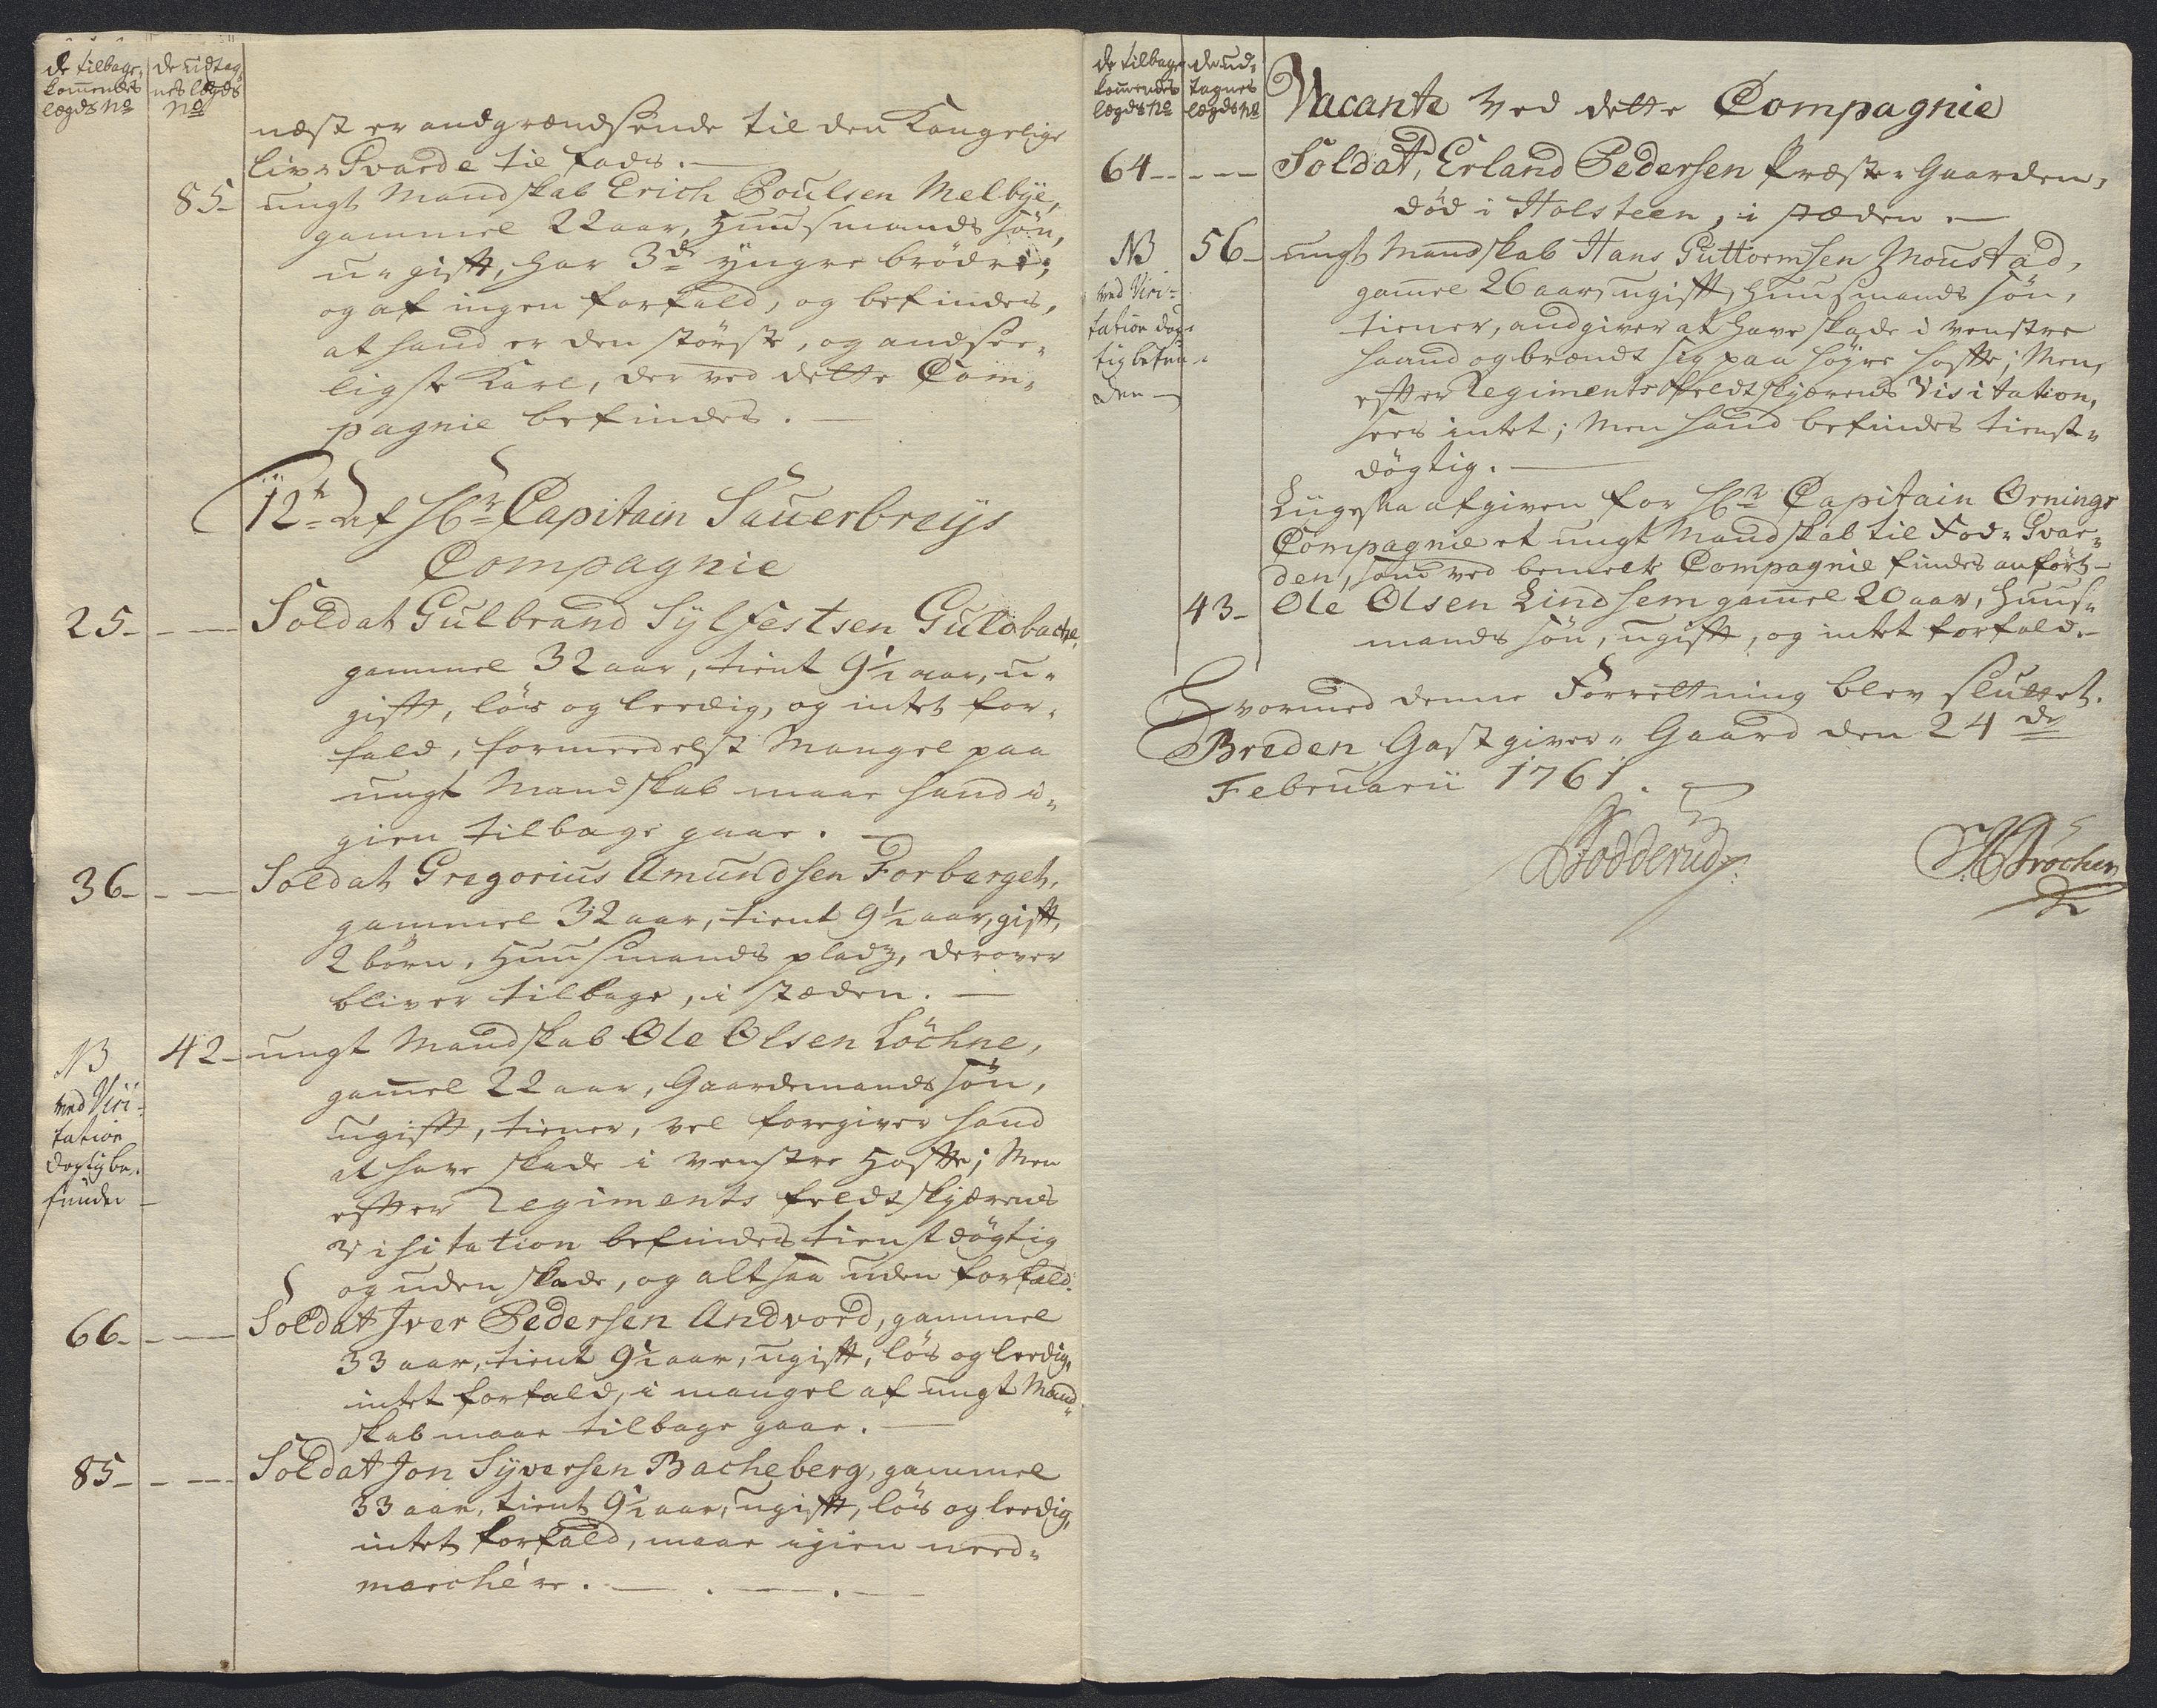 de tilbage,
kommendes
lægds No
de udtag,
nes lægds
No
næst er andgrændsende til den Kongelige
liv„Gvarde til Fods.
85- ungt Mandskab Erich Poulsen Melbÿe,
gammel 22 aar, Huusmands søn,
u„gift, har 3de ÿngre brödre;
og af ingen forfald, og befindes,
at hand er den störste, og andsee„
ligste Karl, der ved dette Com„
pagnie befindes.
12te Af Hr Capitain Sauerbreÿs
Compagnie
25- Soldat Gulbrand Sÿlfestsen Gulobache,
gammel 32 aar, tient 9½ aar, u„
gift, lös og leedig, og intet for„
fald, formeedelst Mangel paa
ungt Mandskab maae hand i„
gien tilbage gaae.
36- Soldat Gregorius Amundsen Forbarget,
gammel 32 aar, tient 9½ aar, gift,
2 børn, Huusmands pladz, derover
bliver tilbage, i stæden.
NB
ved Visi-
tation
dögtig be-
funden
42- ungt Mandskab Ole Olsen Löchne,
gamel 22 aar, Gaardemands søn,
ugift, tiener, vel foregiver hand
at have skade i venstre Hofte; Men
efter Regiments feldtskjærens
Visitation befindes tienstdögtig
og uden skade, og altsaa uden forfald.
66- Soldat Iver Pedersen Andvord, gammel
33 aar, tient 9½ aar, ugift, lös og leedig,
intet forfald, i mangel af ungt Mand„
skab maae tilbage gaae.
85- Soldat Jon Sÿversen Bacheberg, gammel
33 aar, tient 9½ aar, ugift, lös og leedig,
intet forfald, maae igien need„
marchére.
de tilbage
kommendes
lægds No
de ud„
tagnes
lægds No
Vacante ved dette Compagnie
64- Soldat, Erland Pedersen Præste„Gaarden,
död i Holsteen, i stæden
NB
ved Visi-
tation dög-
tig befun-
den
56- ungt Mandskab Hans Guttormsen Moustad,
gamel 26 aar, ugift, Huusmands søn,
tiener, andgiver at have skade i venstre
haand og brændt sig paa höyre hofte; Men,
efter Regiments feldtskjærens Visitation,
sees intet; Men hand befindes tienst„
dögtig.
Ligesaa afgiven for Hr Capitain Ornings
Compagnie et ungt Mandskab til Fod„Gvar„
den, som ved bemelte Compagnie findes anfört
43- Ole Olsen Lindsem gamel 20 aar, Huus„
mands søn, ugift, og intet forfald.
Hvormed denne Forrettning blev sluttet.
Breden Gastgiver„Gaard den 24de
Februarii 1761.